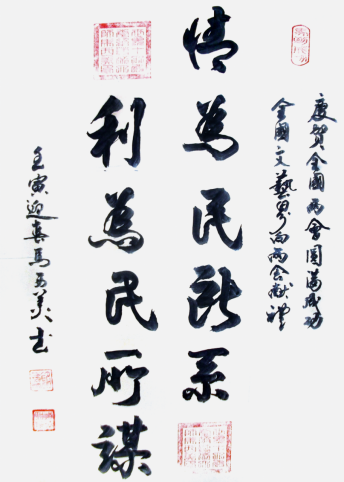 慶賀全國兩會圓滿成功
全國文藝界向兩會獻禮
情為民所系
利為民所謀
壬寅迎喜馬